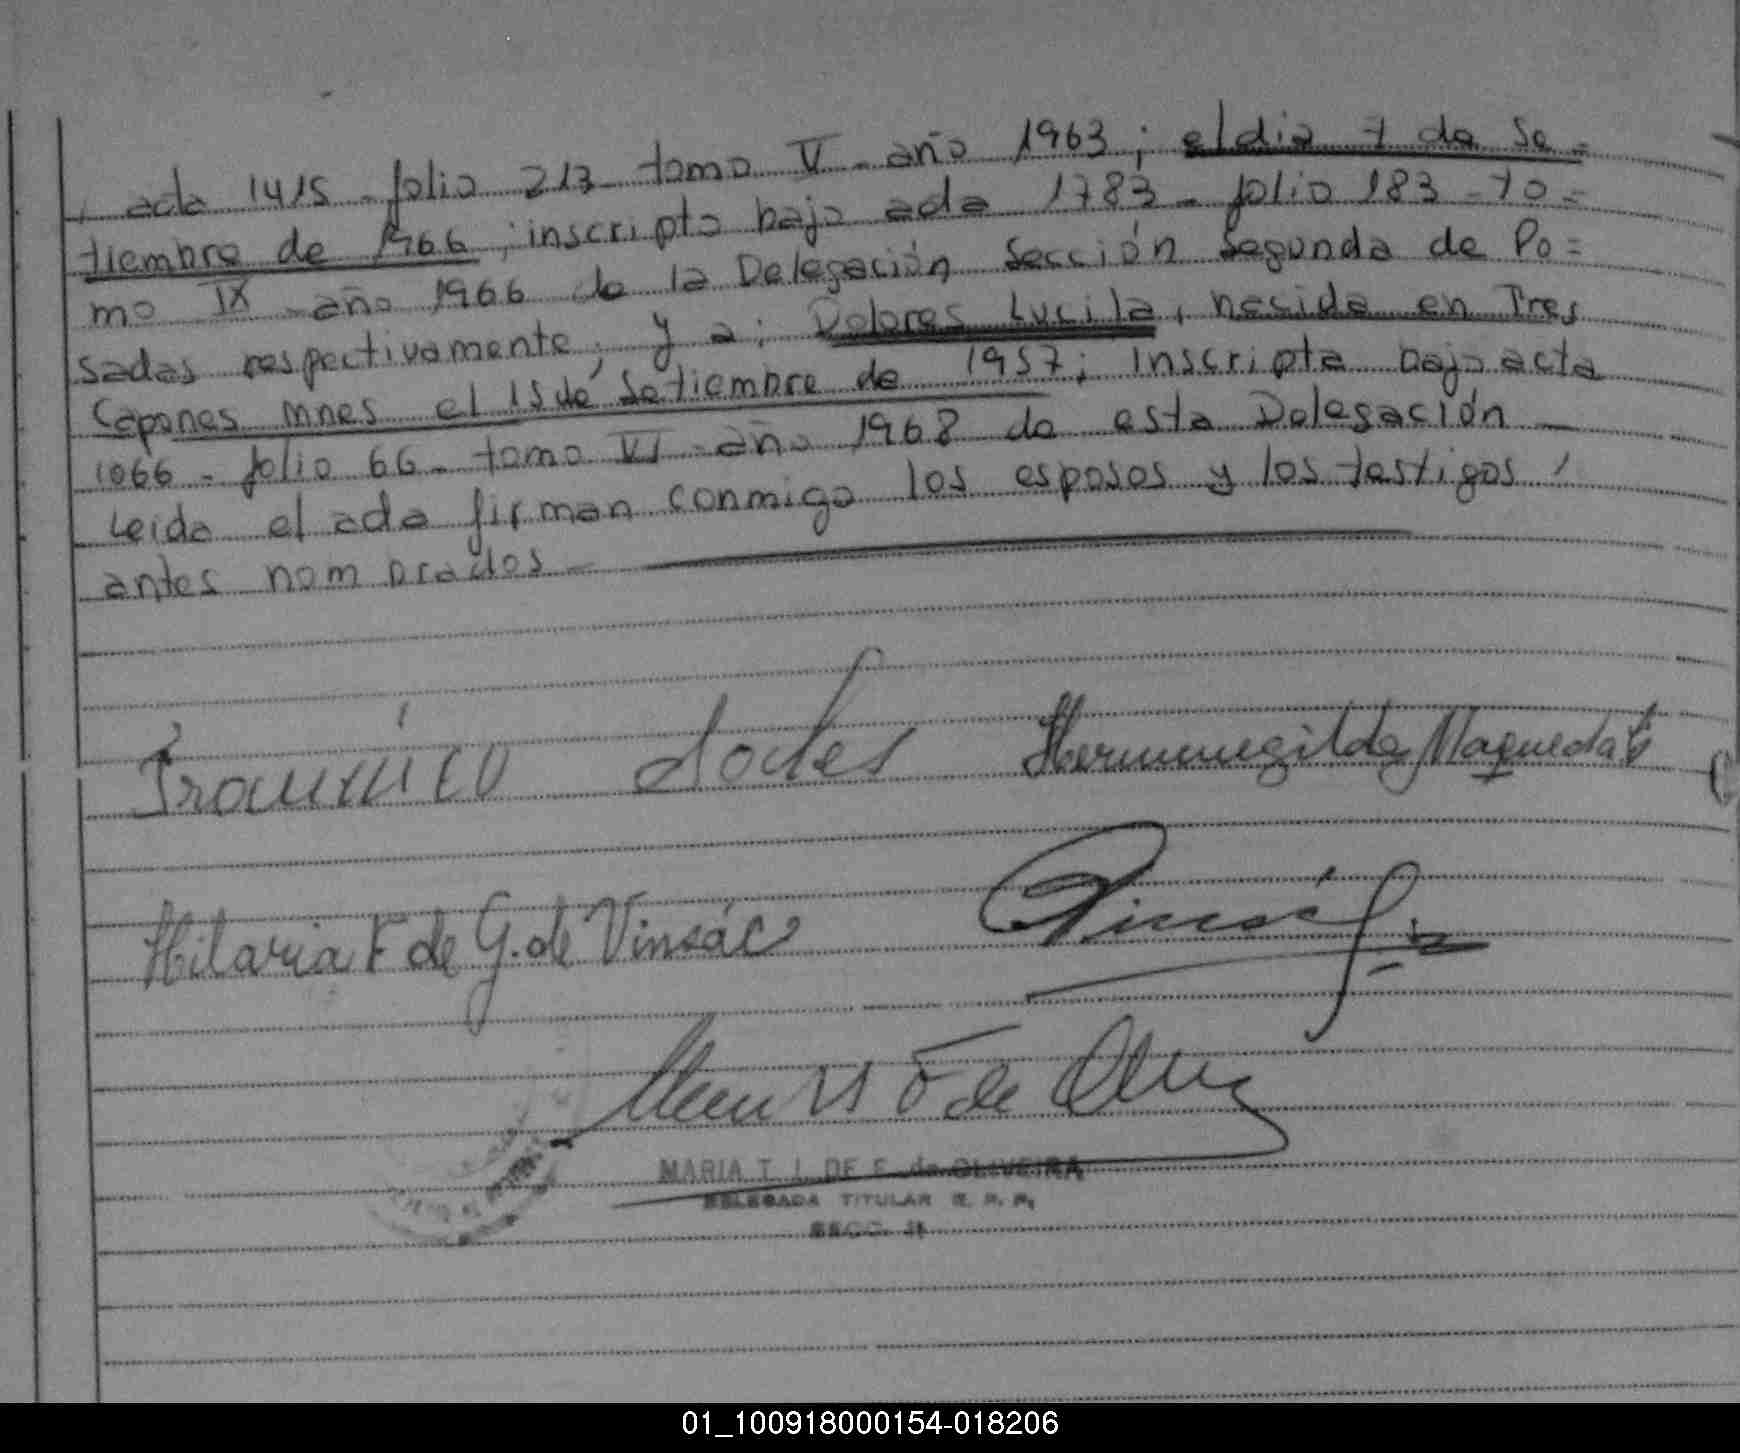 acta 1415 - folio 213 - tomo V - año 1963; el dia 7 de Se=
tiembre de 1966; inscripto bajo acta 1783 - folio 183 - to=
mo IX - año 1966 de la Delegación Sección Segunda de Po=
sadas respectivamente, y a: Dolores Lucila, nacida en Tres
Capones Mnes el 15 de Setiembre de 1957; inscripta bajo acta
1066 - folio 66 - tomo VI - año 1968 de esta Delegación
Leida el acta firman conmigo los esposos y los testigos
antes nombrados
Hermenegilda Maqueda
Hilaria F de G. de Vinsác
MARIA T. I. DE F. de OLIVEIRA
DELEGADA TITULAR R. P. P.
SECC. II
01_100918000154-018206